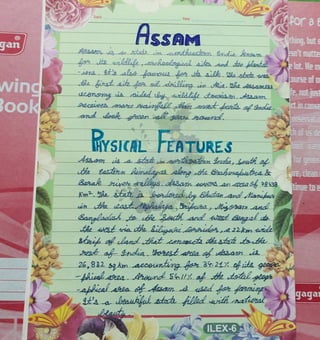 ASSAM
Assam is a state in northeastern India known
for its wildlife, archeological sites and tea planta
-ions. It's also famous for its silk. The state was
the first site for oil drilling in Asia. The Assamese
economy is aided by wildlife tourism. Assam
receives more rainfall than most parts of India
and look green all year round.
PHYSICAL FEATURES
Assam is a state in northeastern India, south of
the eastern Himalayas along the Brahmaputra &
Barak river valleys. Assam covers an area of 78438
Km². The state is bordered by Bhutan and
in the east, Meghalaya, Tripura, Mizoram and
Bangladesh to the South and West Bengal to
the west via the Siliguri Corridor, a 22 km wide
strip of land that connects the state to the
rest of India. Forest area of Assam is
26,832 sq km accounting for of its geogr-
phical area. Around of the total geogr-
aphical area of Assam is used for farming.
It's a beautiful state filled with natural
beauty.
ILEX-6
gan
wing
Book